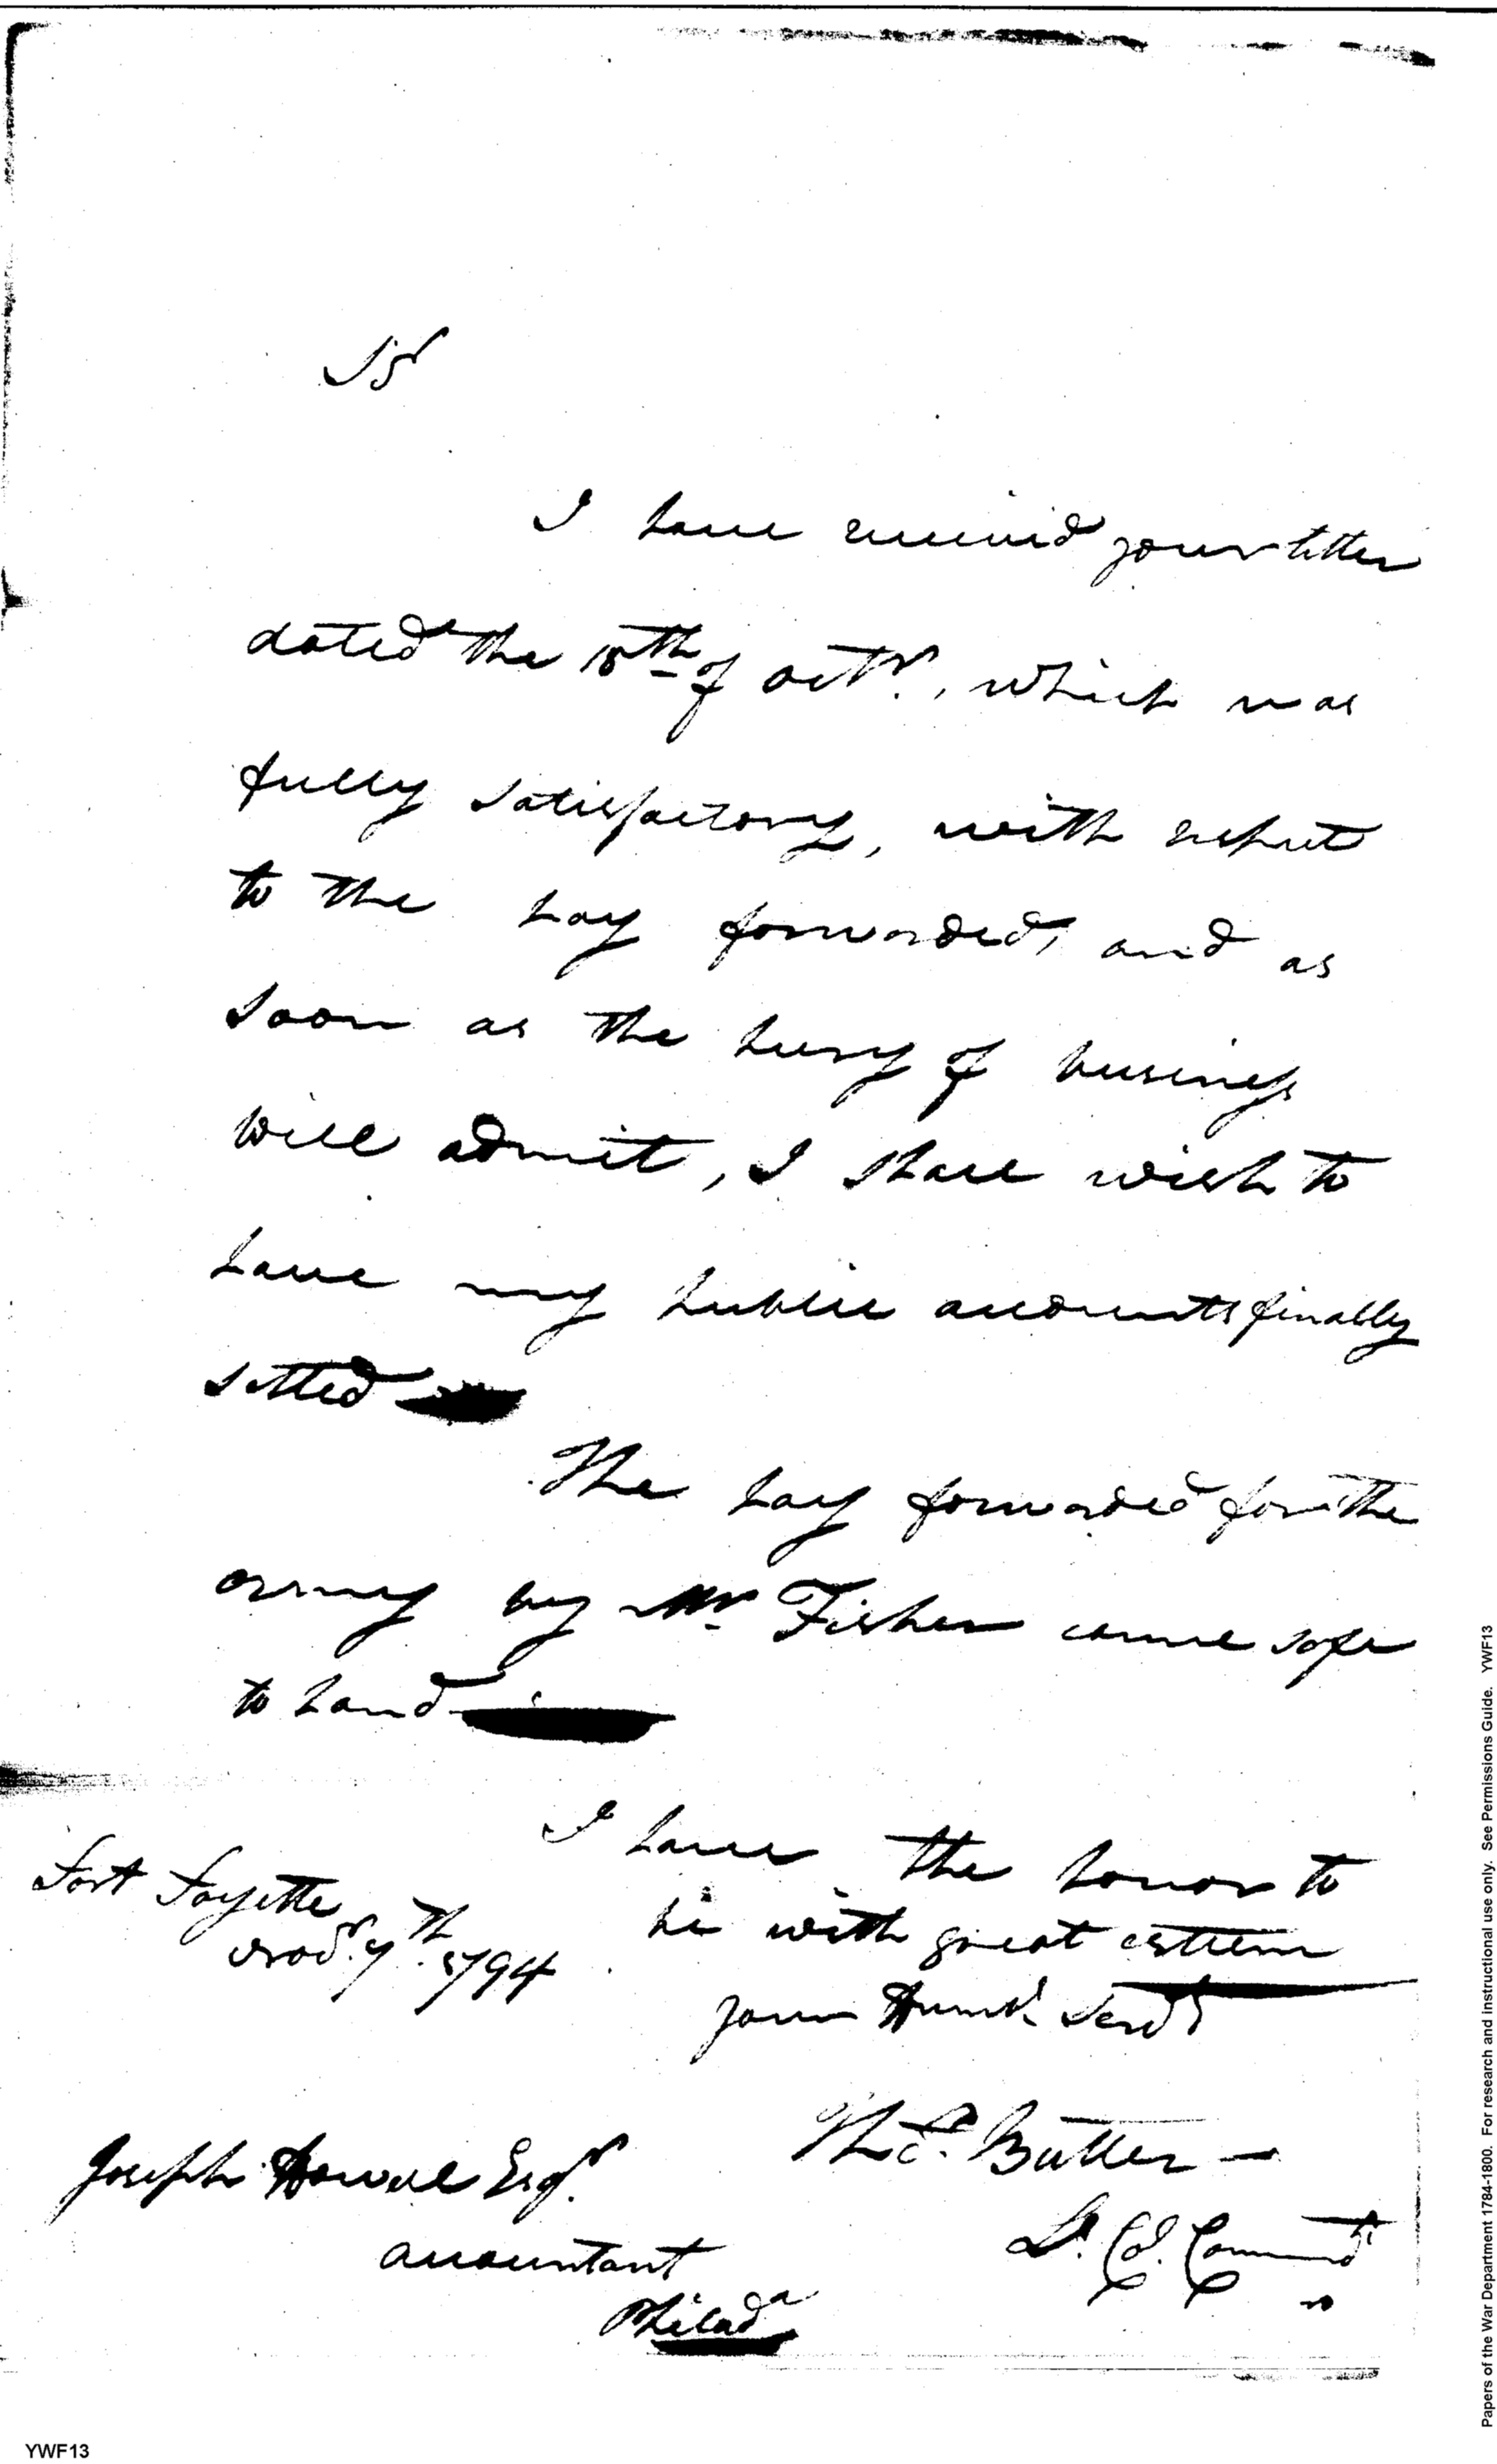 Sr
I have received your letter
dated the 18th of Octr., which was
fully satisfactory, with respect
to the pay forwarded, and as
soon as the hurry of business
will admit, I shall wish to
have my public accounts finally
settled
The pay forwarded for the
army by Mr Fisher came safe
to hand
I have the honor to
be with great esteem
your Humbl Servt
Fort Fayette
7th 1794
Thos. Butler
Lt. Col. Commandt
Joseph Howell Esqr.
accountant
Philada
Papers of the War Department 1784-1800. For research and instructional use only. See Permissions Guide. YWF13
YWF13